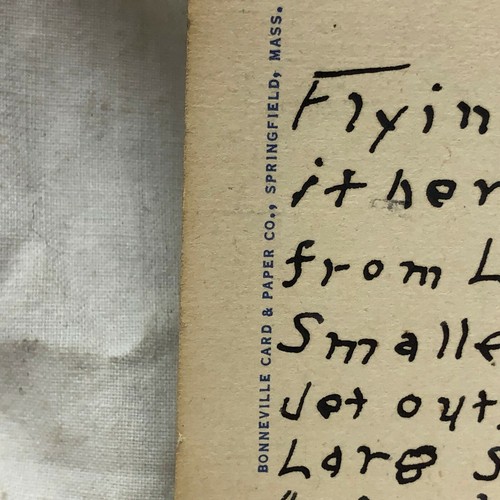 BONNEVILLE CARD & PAPER CO., SPRINGFIELD, MASS.
Flyin
it her
from L
Smalle
Jet out,
Larg s